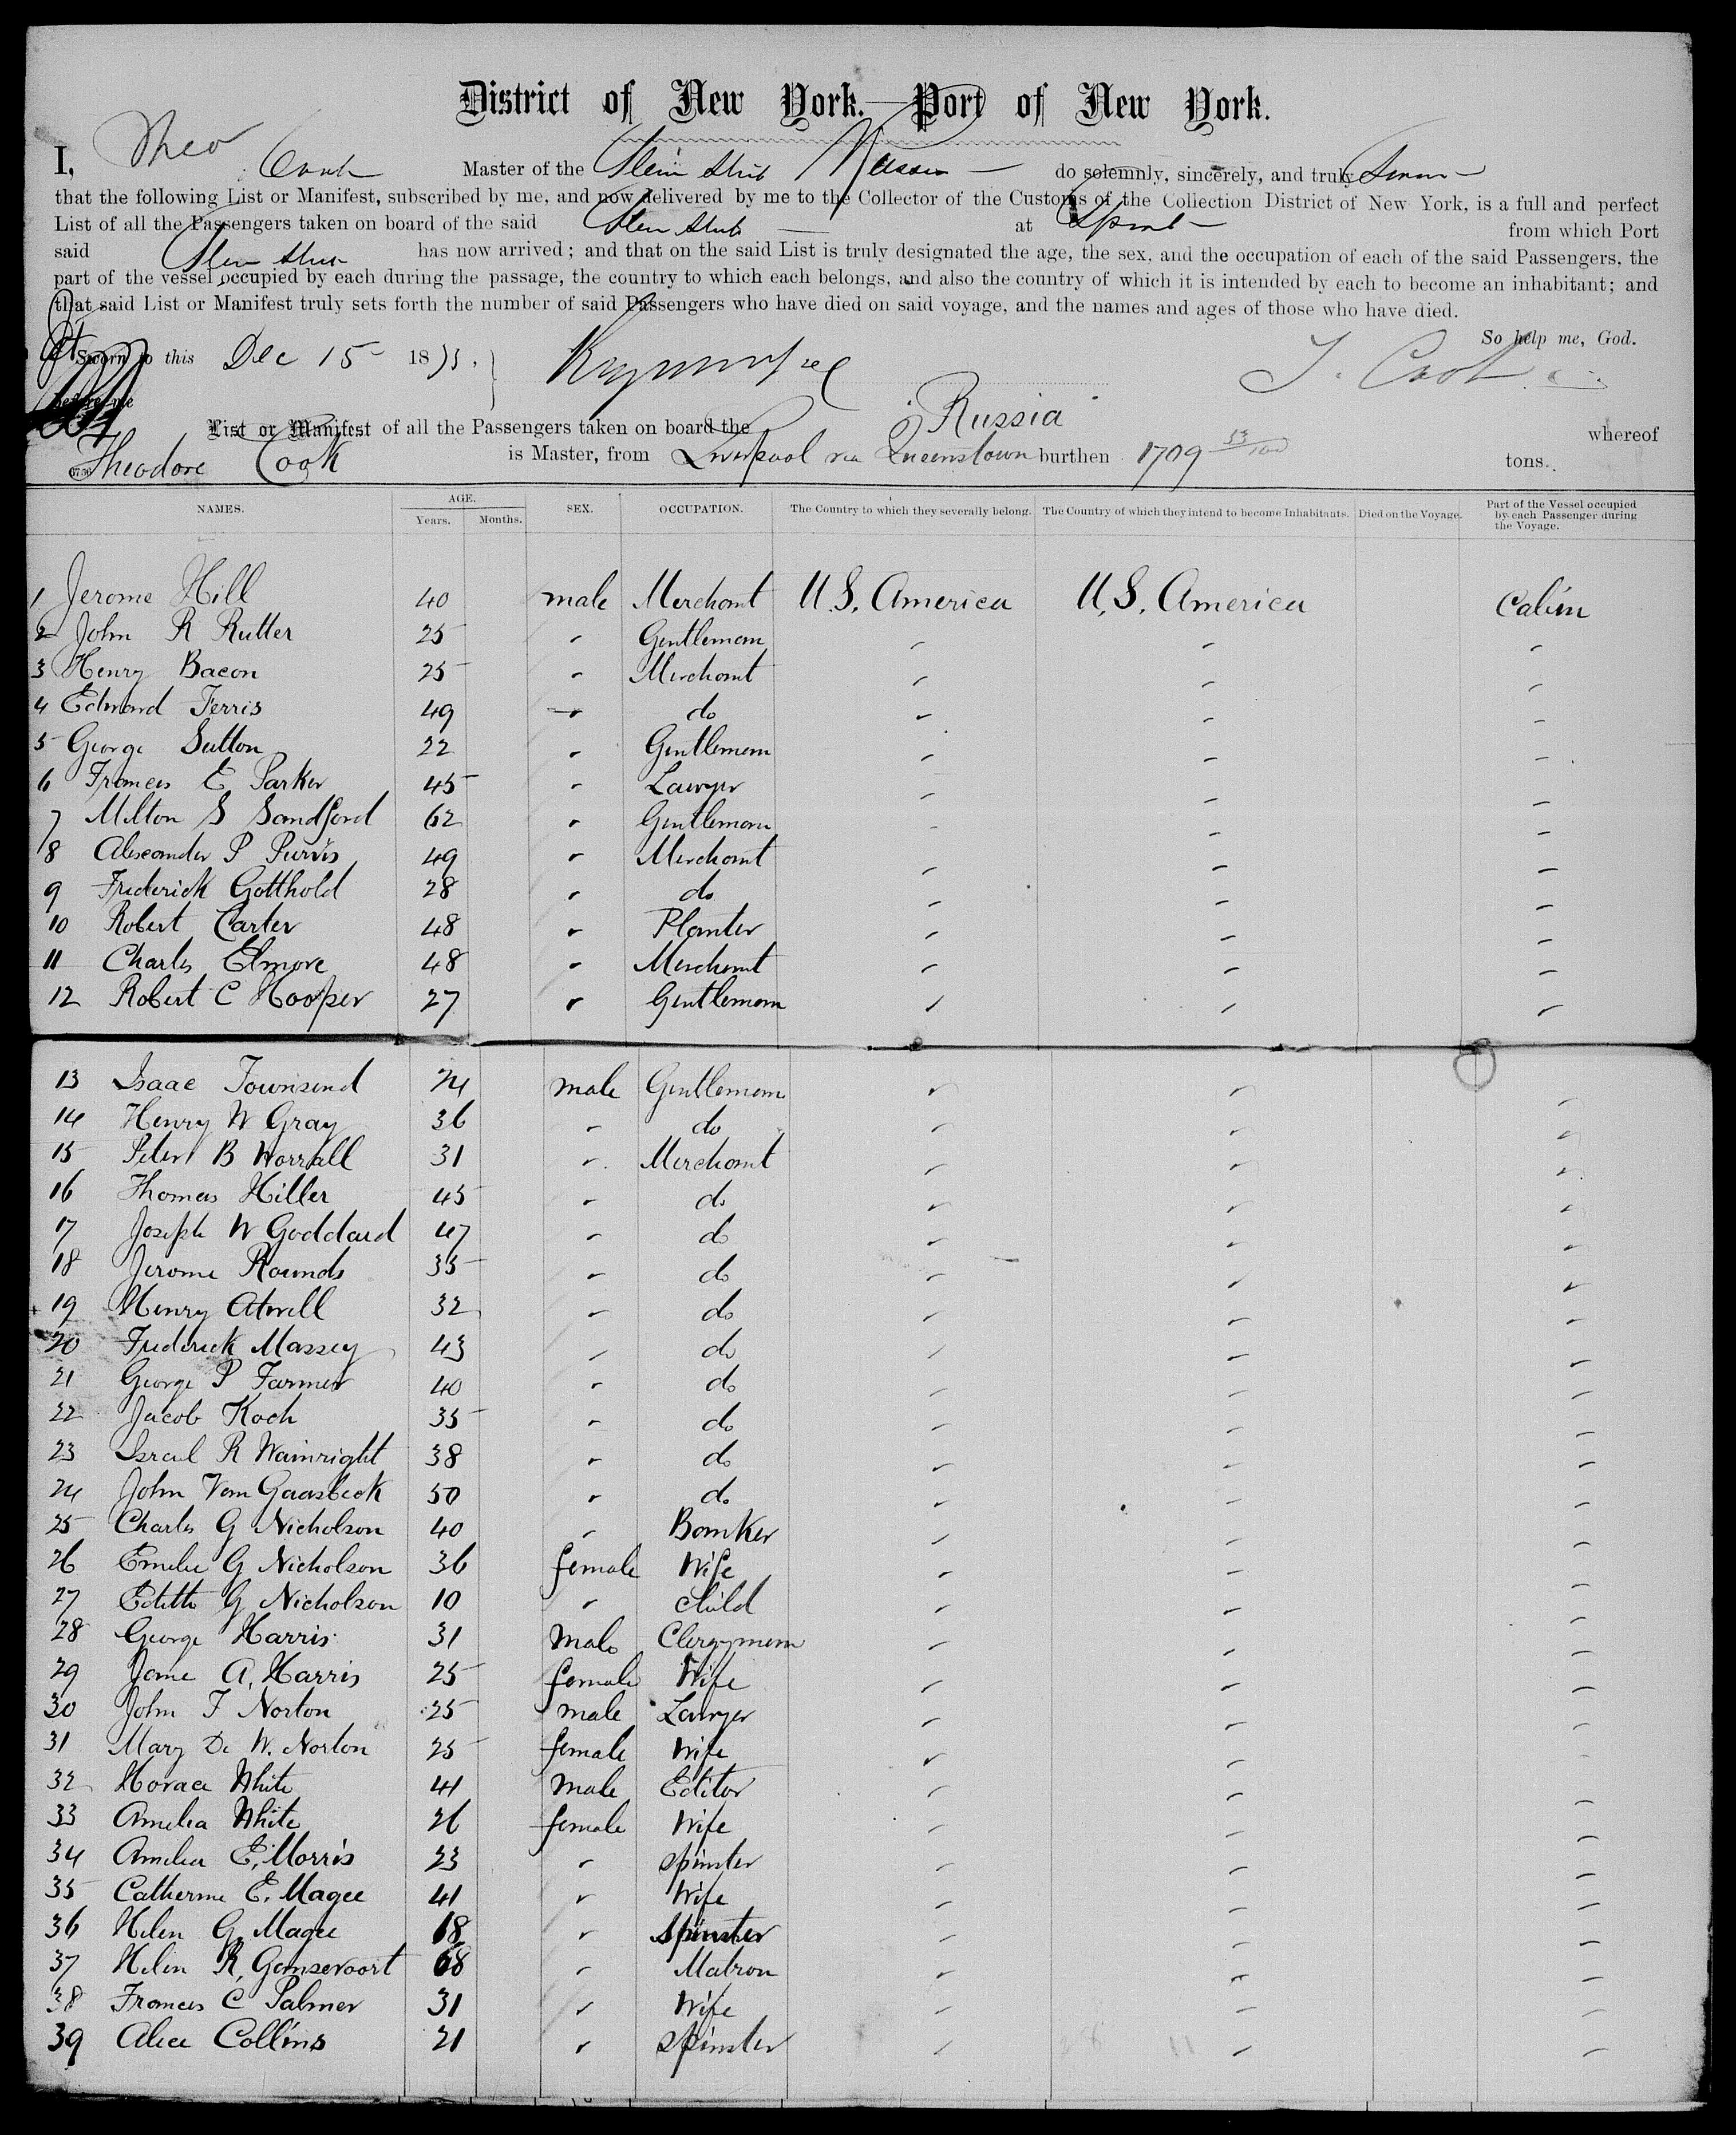 District of New York.—Port of New York.
I, Theo Cook Master of the Stein Ship Russia do solemnly, sincerely, and truly Swear
that the following List or Manifest, subscribed by me, and now delivered by me to the Collector of the Customs of the Collection District of New York, is a full and perfect
List of all the Passengers taken on board of the said at from which Port
said has now arrived; and that on the said List is truly designated the age, the sex, and the occupation of each of the said Passengers, the
part of the vessel occupied by each during the passage, the country to which each belongs, and also the country of which it is intended by each to become an inhabitant; and
that said List or Manifest truly sets forth the number of said Passengers who have died on said voyage, and the names and ages of those who have died.
So help me, God.
Sworn to this Dec 15 1873. T. Cook
before me
List or Manifest of all the Passengers taken on board the "Russia" whereof
Theodore Cook is Master, from Liverpool via Queenstown burthen 1709 53/100 tons.
NAMES. AGE. Years. Months. SEX. OCCUPATION. The Country to which they severally belong. The Country of which they intend to become Inhabitants. Died on the Voyage. Part of the Vessel occupied by each Passenger during the Voyage.
1 Jerome Hill 40 male Merchant U.S. America U.S. America Cabin
2 John R Rutter 25 " Gentleman " " "
3 Henry Bacon 25 " Merchant " " "
4 Edmond Ferris 49 " do " " "
5 George Sutton 22 " Gentleman " " "
6 Frances E Parker 45 " Lawyer " " "
7 Milton S Sandford 62 " Gentleman " " "
8 Alexander P Purvis 49 " Merchant " " "
9 Frederick Gotthold 28 " do " " "
10 Robert Carter 48 " Planter " " "
11 Charles Elmore 48 " Merchant " " "
12 Robert C Hooper 27 " Gentleman " " "
13 Isaac Townsend 24 male Gentleman " " "
14 Henry W Gray 36 " do " " "
15 Peter B Worrall 31 " Merchant " " "
16 Thomas Hiller 45 " do " " "
17 Joseph W Goddard 47 " do " " "
18 Jerome Rounds 35 " do " " "
19 Henry Atwell 32 " do " " "
20 Frederick Massey 43 " do " " "
21 George P Farmer 40 " do " " "
22 Jacob Koch 35 " do " " "
23 Israel R Wainright 38 " do " " "
24 John Van Gaasbeek 50 " do " " "
25 Charles G Nicholson 40 " Banker " " "
26 Emelie G Nicholson 36 female Wife " " "
27 Edith G Nicholson 10 " child " " "
28 George Harris 31 Male Clergyman " " "
29 Jane A. Harris 25 female Wife " " "
30 John F Norton 25 male Lawyer " " "
31 Mary De W. Norton 25 female Wife " " "
32 Horace White 41 male Editor " " "
33 Amelia White 26 female Wife " " "
34 Amelia E. Morris 23 " spinster " " "
35 Catherine E. Magee 41 " Wife " " "
36 Helen G. Magee 18 " Spinster " " "
37 Helen R. Gansevoort 68 " Matron " " "
38 Frances C Palmer 31 " Wife " " "
39 Alice Collins 21 " spinster " " "